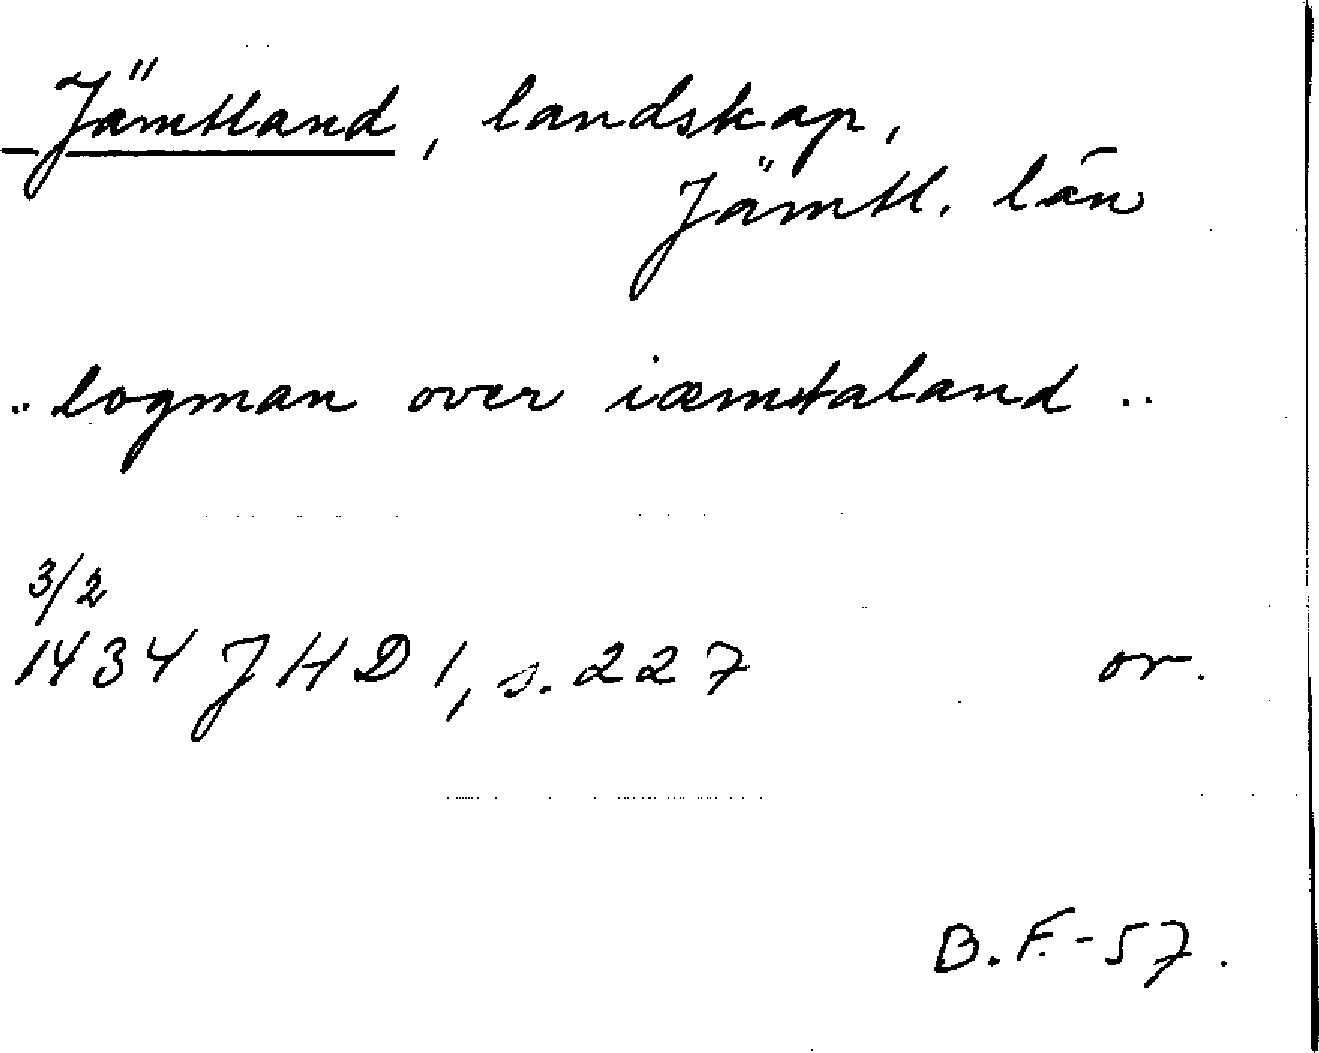 Jämtland, landskap,
Jämtl. län
.. logman over iæmtaland ..
3/2
1434 JHD 1, s. 227 or.
B.F.-57.